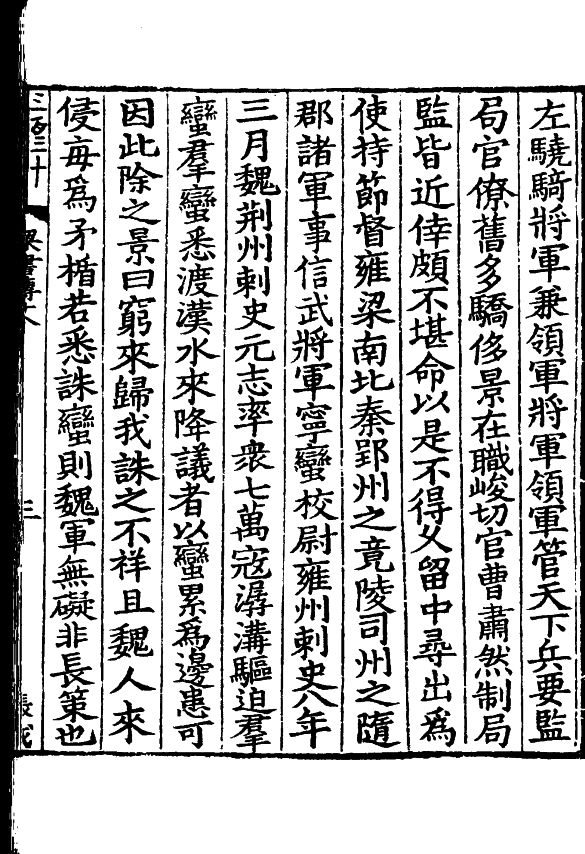 左驍騎將軍兼領軍將軍領軍管天下兵要監
局官僚舊多驕侈景在職峻切官曹肅然制局
監皆近倖頗不堪命以是不得久留中尋出爲
使持節督雍梁南北秦郢州之竟陵司州之隨
郡諸軍事信武將軍寧蠻校尉雍州刺史八年
三月魏荆州刺史元志率衆七萬寇潺溝驅迫羣
蠻羣蠻悉渡漢水來降議者以蠻累爲邊患可
因此除之景曰窮來歸我誅之不祥且魏人來
侵每爲矛楯若悉誅蠻則魏軍無礙非長策也
三